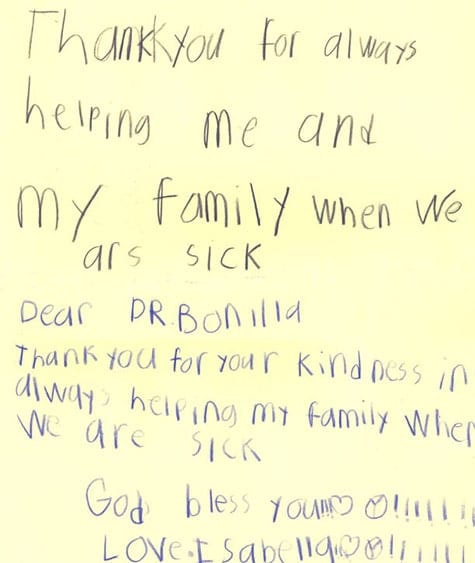 Thankkyou for always
helping me and
my family when we
ars sick
Dear DR.Bonilla
Thank you for your kindness in
always helping my family when
we are sick
God bless you!!!♡♡!!!!!!!
Love.Isabella♡♡!!!!!!!